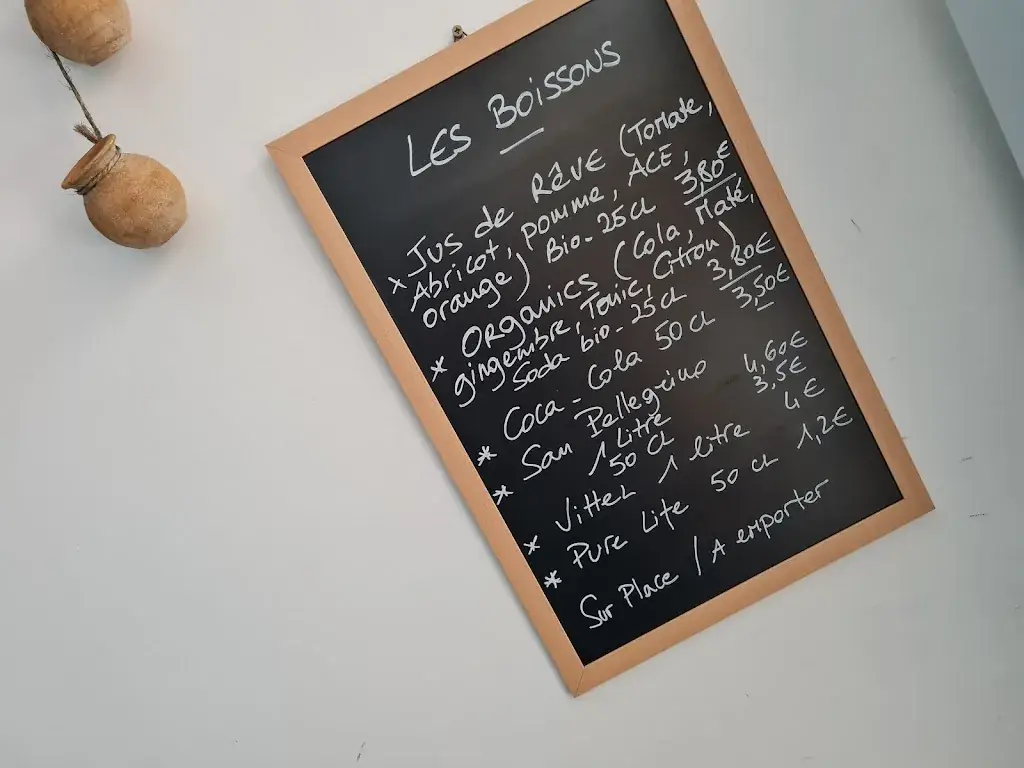 LES BOISSONS
x Jus de RÊVE (Tomate,
Abricot, pomme, ACE,
orange) Bio - 25 cl 3,80€
* ORGANICS (Cola, Maté,
gingembre, Tonic, Citron)
Soda bio - 25 cl 3,80€
* Coca - Cola 50 cl 3,50€
* San Pellegrino
1 Litre 4,60€
50 cl 3,5€
* Vittel 1 litre 4€
* Pure Life 50 cl 1,2€
Sur Place / A emporter